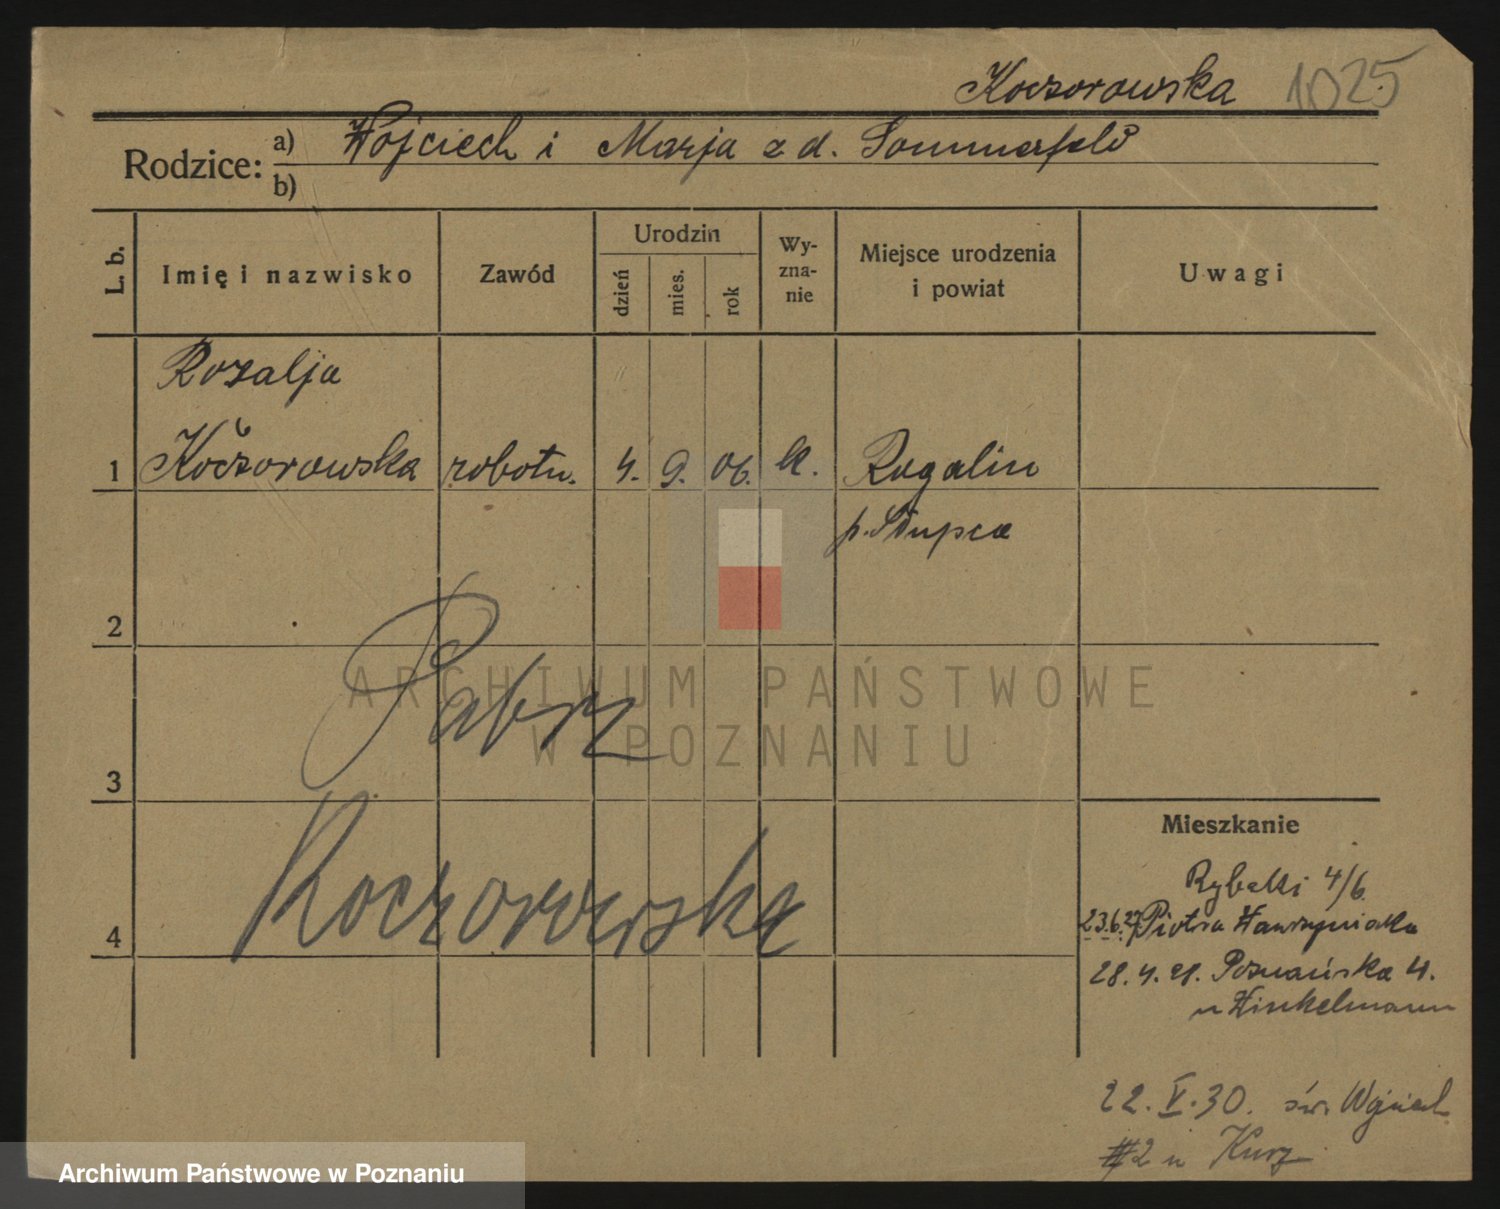 Koczorowska 1025
Rodzice: a) Wojciech i Marja z d. Sommerfeld
b)
L. b. Imię i nazwisko Zawód Urodzin dzień mies. rok Wy-zna-nie Miejsce urodzenia i powiat Uwagi
Rozalja
1 Koczorowska robotn. 4. 9. 06. k. Rogalin
p. Słupca
2
3
Koczorowska
4
Mieszkanie
Rybaki 4/6
23.6.27 Piotra Wawrzyniaka
28.4.28. Poznańska 4.
u Winkelmann
22. V. 30. św. Wojciech
2 u Kurz
ARCHIWUM PAŃSTWOWE
W POZNANIU
Archiwum Państwowe w Poznaniu